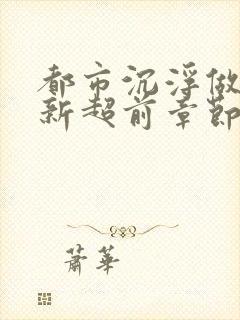 都市沉浮做
新超前章節
蕭華